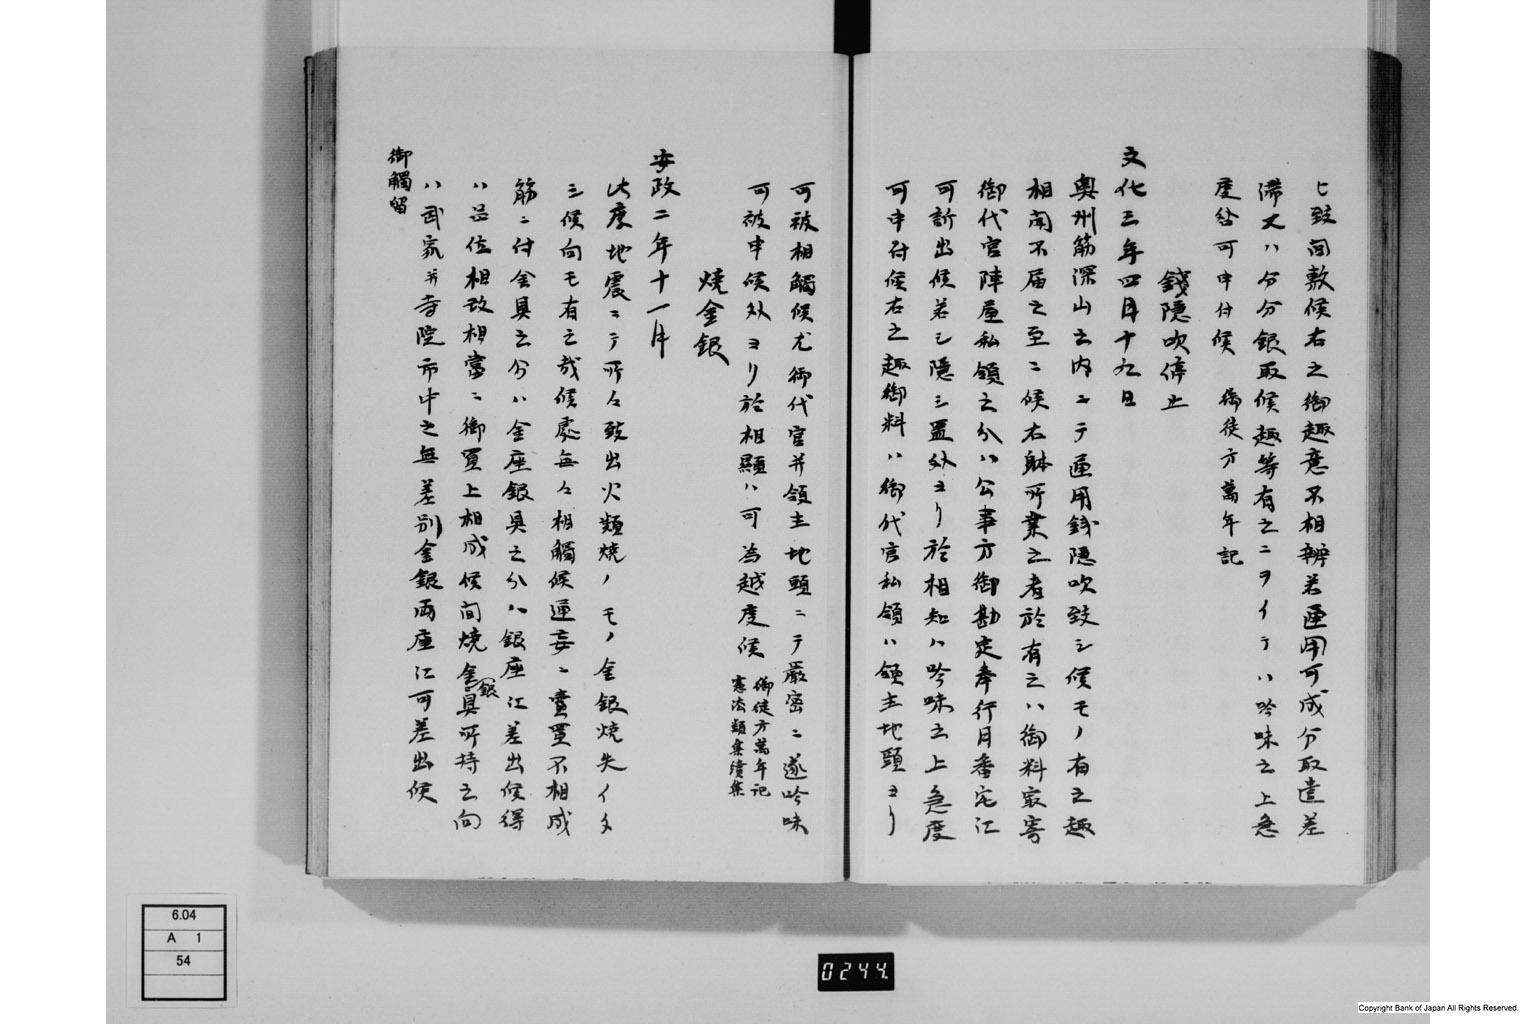 ヒ致間敷候右之御趣意不相辨若通用可成分取遣差
滞又ハ分分銀取候趣等有之ニヲイテハ吟味之上急
度咎可申付候　御徒方萬年記
錢隠吹停止
文化三年四月十九日
奥州筋深山之内ニテ通用錢隠吹致シ候モノ有之趣
相聞不届之至ニ候右躰所業之者於有之ハ御料最寄
御代官陣屋私領之分ハ公事方御勘定奉行月番宅江
可訴出候若シ隠シ置外ヨリ於相知ハ吟味之上急度
可申付候右之趣御料ハ御代官私領ハ領主地頭ヨリ
可被相觸候尤御代官并領主地頭ニテ嚴密ニ遂吟味
可被申候外ヨリ於相顯ハ可為越度候
御徒方萬年記
憲法類集續集
燒金銀
安政二年十一月
此度地震ニテ所々致出火類燒ノモノ金銀燒失イタ
シ候向モ有之哉候處無々相觸候通妄ニ賣買不相成
筋ニ付金具之分ハ金座銀具之分ハ銀座江差出候得
ハ品位相改相當ニ御買上相成候間燒金銀具所持之向
ハ武家并寺院市中之無差別金銀両座江可差出候
御觸留
6.04
A 1
54
0244.
Copyright Bank of Japan All Rights Reserved.